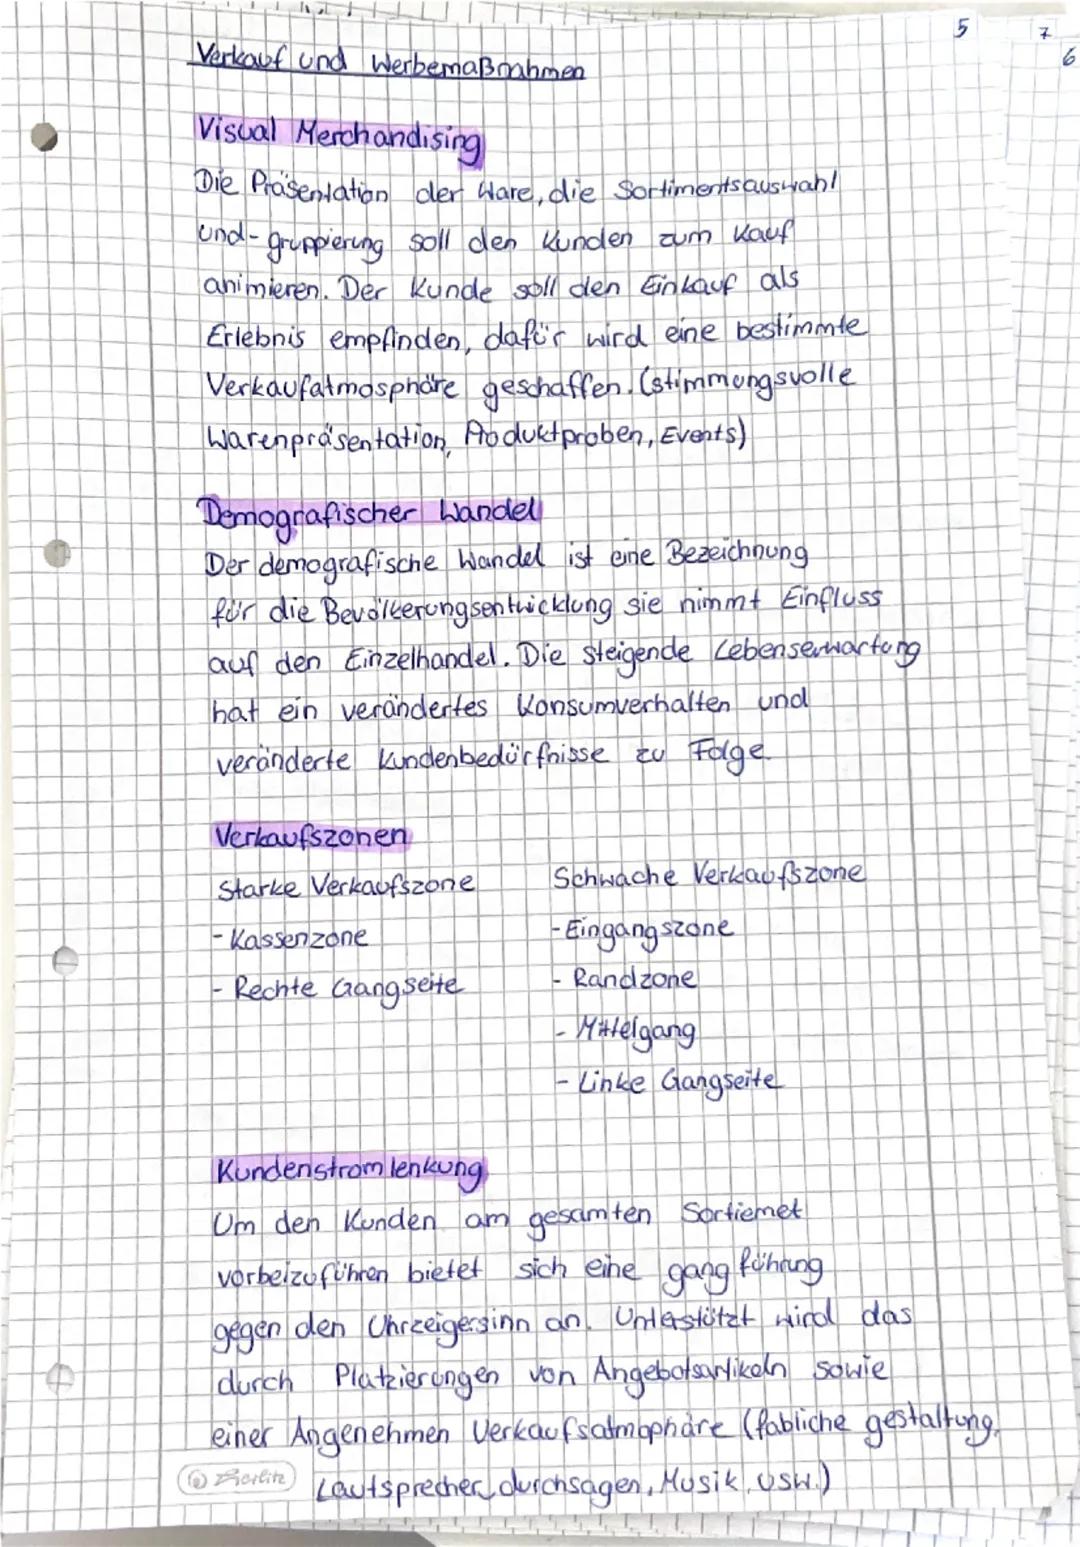 5
7
6
Verkauf und Werbemaßnahmen
Visual Merchandising
Die Präsentation der Ware, die Sortimentsauswahl
und-gruppierung soll den Kunden zum Kauf
animieren. Der Kunde soll den Einkauf als
Erlebnis empfinden, dafür wird eine bestimmte
Verkaufatmosphäre geschaffen. (stimmungsvolle
Warenpräsentation, Produktproben, Events)
Demografischer Wandel
Der demografische Wandel ist eine Bezeichnung
für die Bevölkerungsentwicklung sie nimmt Einfluss
auf den Einzelhandel. Die steigende Lebenserwartung
hat ein verändertes Konsumverhalten und
veränderte Kundenbedürfnisse zu Folge.
Verkaufszonen
Starke Verkaufszone Schwache Verkaufszone
- Kassenzone - Eingangszone
- Rechte Gangseite - Randzone
- Mittelgang
- Linke Gangseite
Kundenstromlenkung
Um den Kunden am gesamten Sortiemet
vorbeizuführen bietet sich eine gangführung
gegen den Uhrzeigersinn an. Unterstützt wird das
durch Platzierungen von Angebotsartikeln sowie
einer Angenehmen Verkaufsatmophäre (fabliche gestaltung,
Lautsprecher durchsagen, Musik, usw.)
Berlitz